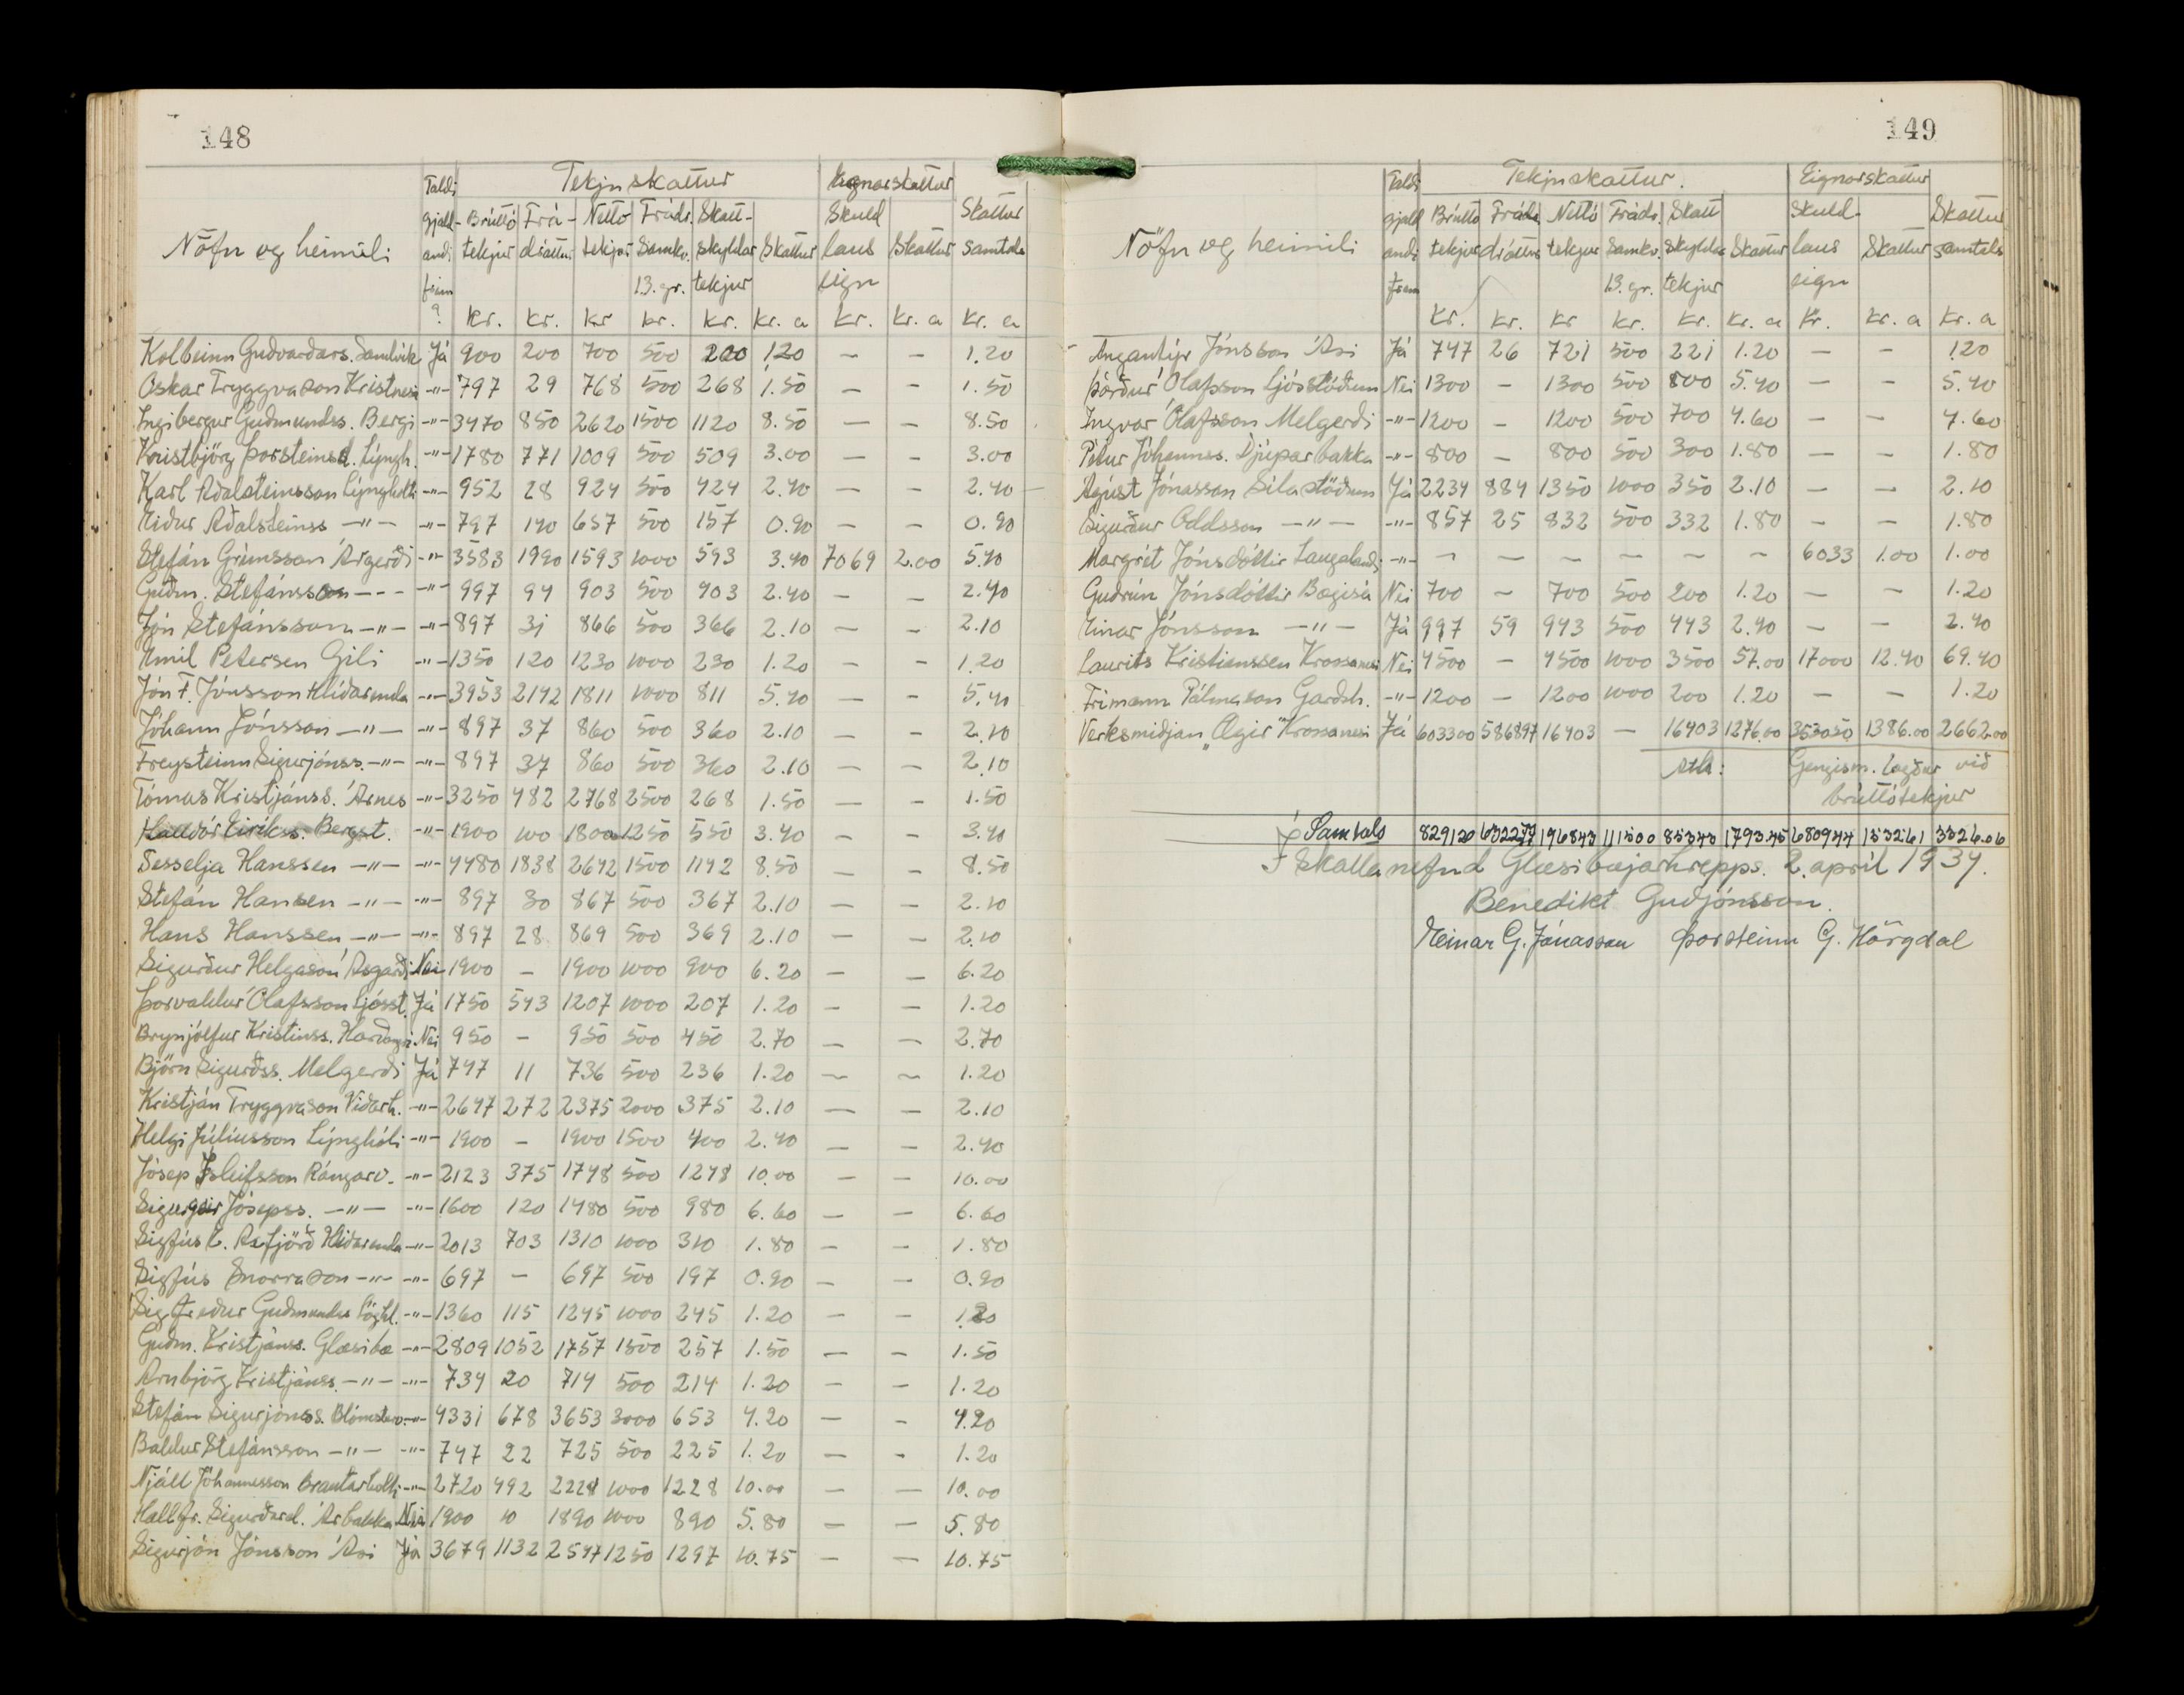 148
Taldi Tekjuskattur Eignarskattur
gjald- Brúttó Frá- Nettó Frádr. Skatt- Skuld Skattur
Nöfn og heimili andi tekjur dráttur tekjur Samkv. skyldar Skattur laus Skattur samtals
fram 13. gr. tekjur eign
? Kr. Kr. Kr Kr. Kr. Kr. a Kr. Kr. a Kr. a
Kolbeinn Guðvarðars. Sandvík Já 900 200 700 500 200 1.20 — — 1.20
Oskar Tryggvason Kristnesi -"- 797 29 768 500 268 1.50 — — 1.50
Ingibergur Guðmundss. Bergi -"- 3470 850 2620 1500 1120 8.50 — — 8.50
Kristbjörg Þorsteinsd. Lyngh. -"- 1780 771 1009 500 509 3.00 — — 3.00
Karl Aðalsteinsson Lyngholti -"- 952 28 924 500 424 2.40 — — 2.40
Eiður Aðalsteinss -"- -"- 797 140 657 500 157 0.90 — — 0.90
Stefán Grímsson Árgerði -"- 3583 1990 1593 1000 593 3.40 7069 2.00 5.40
Guðm. Stefánsson - - - -"- 997 94 903 500 403 2.40 — — 2.40
Jón Stefánsson -"- -"- 897 31 866 500 366 2.10 — — 2.10
Emil Petersen Gili -"- 1350 120 1230 1000 230 1.20 — — 1.20
Jón F. Jónsson Hlíðarenda -"- 3953 2142 1811 1000 811 5.40 — — 5.40
Jóhann Jónsson -"- -"- 897 37 860 500 360 2.10 — — 2.10
Freysteinn Sigurjónss. -"- -"- 897 37 860 500 360 2.10 — — 2.10
Tómas Kristjánss. Árnes -"- 3250 482 2768 2500 268 1.50 — — 1.50
Halldór Eiríkss. Bergst. -"- 1900 100 1800 1250 550 3.40 — — 3.40
Sesselja Hanssen -"- -"- 4480 1838 2642 1500 1142 8.50 — — 8.50
Stefán Hansen -"- -"- 897 30 867 500 367 2.10 — — 2.10
Hans Hanssen -"- -"- 897 28 869 500 369 2.10 — — 2.10
Sigurður Helgason Ásgarði Nei 1900 — 1900 1000 900 6.20 — — 6.20
Þorvaldur Ólafsson Ljósst. Já 1750 543 1207 1000 207 1.20 — — 1.20
Brynjólfur Kristinss. Harðangri Nei 950 — 950 500 450 2.70 — — 2.70
Björn Sigurðss. Melgerði Já 747 11 736 500 236 1.20 — — 1.20
Kristján Tryggvason Viðarh. -"- 2647 272 2375 2000 375 2.10 — — 2.10
Helgi Júlíusson Lynghóli -"- 1900 — 1900 1500 400 2.40 — — 2.40
Jósep Isleifsson Rángarv. -"- 2123 375 1748 500 1248 10.00 — — 10.00
Sigurgeir Jósepss. -"- -"- 1600 120 1480 500 980 6.60 — — 6.60
Sigfús E. Axfjörð Hlíðarenda -"- 2013 703 1310 1000 310 1.80 — — 1.80
Sigfús Snorrason -"- -"- 697 — 697 500 197 0.90 — — 0.90
Sigfreður Guðmundss -"- 1360 115 1245 1000 245 1.20 — — 1.20
Guðm. Kristjánss. Glæsibæ -"- 2809 1052 1757 1500 257 1.50 — — 1.50
Arnbjörg Kristjánss. -"- -"- 734 20 714 500 214 1.20 — — 1.20
Stefán Sigurjónss. Blómsturv. -"- 4331 678 3653 3000 653 4.20 — — 4.20
Baldur Stefánsson -"- -"- 747 22 725 500 225 1.20 — — 1.20
Njáll Jóhannesson Brautarholti -"- 2720 492 2228 1000 1228 10.00 — — 10.00
Hallfr. Sigurðard. Árbakka Nei 1900 10 1890 1000 890 5.80 — — 5.80
Sigurjón Jónsson Ási Já 3679 1132 2547 1250 1297 10.75 — — 10.75
149
Taldi Tekjuskattur. Eignarskattur
gjald Brúttó Frádr Nettó Frádr. Skatt Skuld- Skattur
Nöfn og heimili andi tekjur dráttur tekjur samkv. skyldar Skattur laus Skattur samtals
fram 13. gr. tekjur eign
Kr. Kr. Kr Kr. Kr. Kr. a Kr. Kr. a Kr. a
Angantýr Jónsson Ási Já 747 26 721 500 221 1.20 — — 1.20
Þórður Ólafsson Ljósstöðum Nei 1300 — 1300 500 800 5.40 — — 5.40
Ingvar Ólafsson Melgerði -"- 1200 — 1200 500 700 4.60 — — 4.60
Pétur Jóhanness. Djúparbakka -"- 800 — 800 500 300 1.80 — — 1.80
Ágúst Jónasson Sílastöðum Já 2234 884 1350 1000 350 2.10 — — 2.10
Sigurður Oddsson -"- -"- 857 25 832 500 332 1.80 — — 1.80
Margrét Jónsdóttir Laugalandi -"- — — — — — — 6033 1.00 1.00
Guðrún Jónsdóttir Bægisá Nei 700 — 700 500 200 1.20 — — 1.20
Einar Jónsson -"- Já 997 59 943 500 443 2.40 — — 2.40
Laurits Kristianssen Krossanesi Nei 4500 — 4500 1000 3500 57.00 17000 12.40 69.40
Frímann Pálmason Garðsh. -"- 1200 — 1200 1000 200 1.20 — — 1.20
Verksmiðjan „Ægir" Krossanesi Já 603300 586897 16403 — 16403 1276.00 353050 1386.00 2662.00
Ath: Gengism. lagður við
brúttótekjur
Samtals 829120 632277 196843 111500 85343 1793.45 680944 1532.61 3326.06
Í Skattanefnd Glæsibæjarhrepps. 2. apríl 1934.
Benedikt Guðjónsson.
Einar G. Jónasson Þorsteinn G. Hörgdal